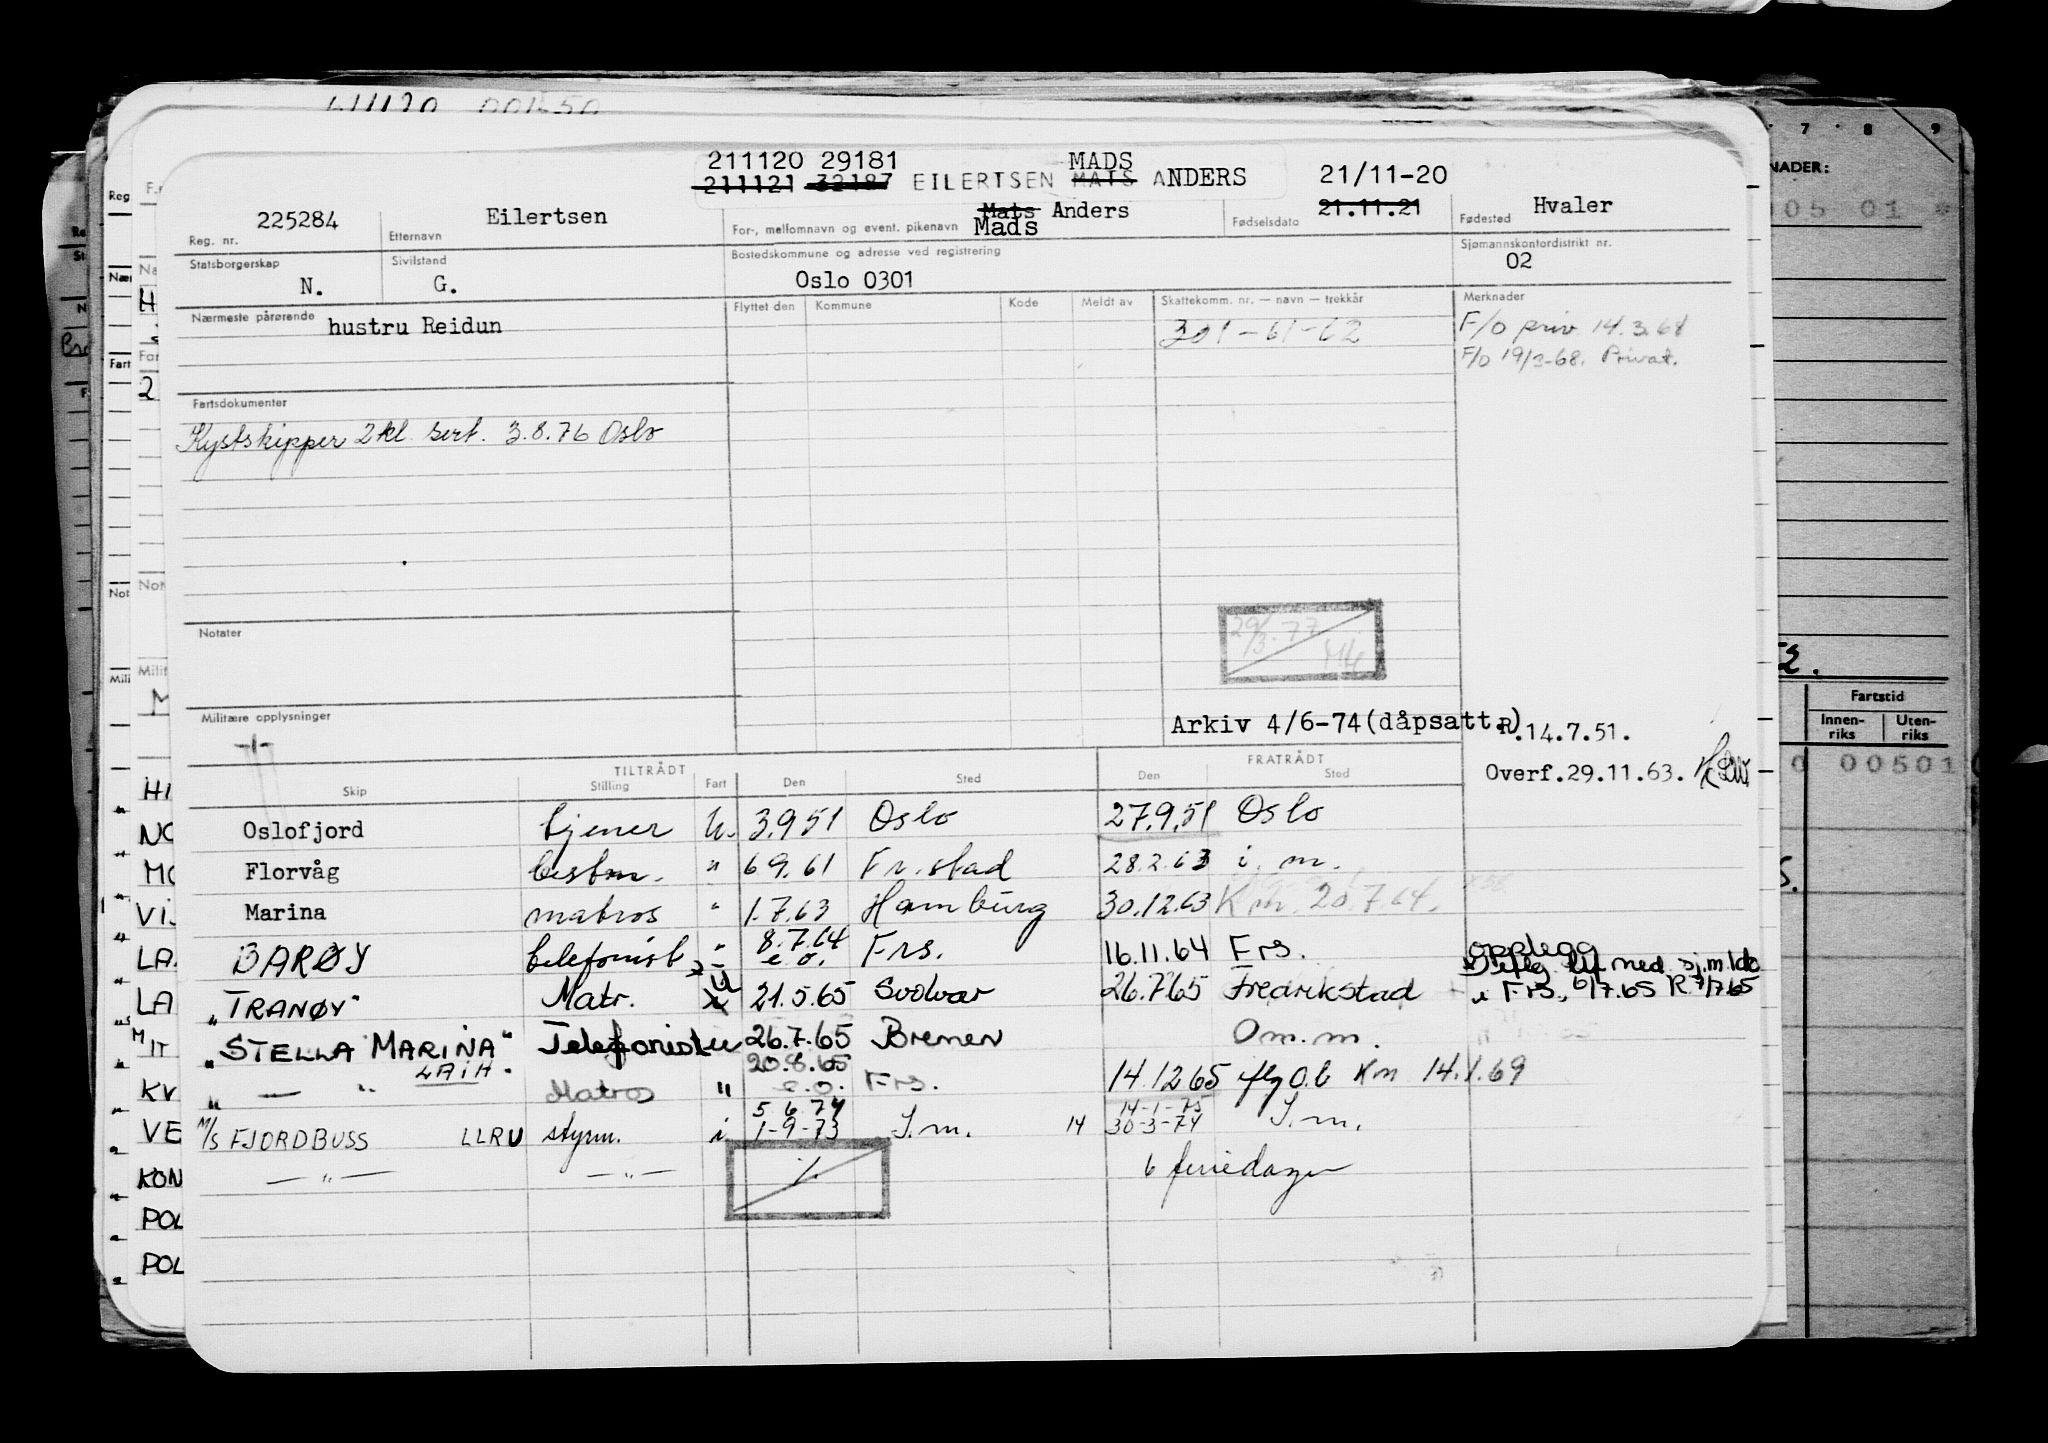 211120 29181 MADS
211121 32187 EILERTSEN MATS ANDERS 21/11-20
225284 Eilertsen Mats Anders 21.11.21 Hvaler
Reg. nr. Etternavn For-, mellomnavn og event. pikenavn Mads Fødselsdato Fødested
Statsborgerskap Sivilstand Bostedskommune og adresse ved registrering Sjømannskontordistrikt nr.
N. G. Oslo 0301 02
Nærmeste pårørende hustru Reidun Flyttet den Kommune Kode Meldt av Skattekomm. nr. — navn — trekkår Merknader
301-61-62 F/o priv 14.3.68
F/o 19/3-68. Privat.
Fartsdokumenter
Kystskipper 2kl sert. 3.8.76 Oslo
29/3-77
Notater
Militære opplysninger Arkiv 4/6-74(dåpsatt.) R.14.7.51.
Overf.29.11.63.
TILTRÅDT FRATRÅDT
Skip Stilling Fart Den Sted Den Sted
Oslofjord tjener U. 3.9.51 Oslo 27.9.51 Oslo
Florvåg bestm. " 6.9.61 Fr.stad 28.2.63 i. m.
Marina matros " 1.7.63 Hamburg 30.12.63 Km. 20.7.64.
BARØY telefonist " 8.7.64 e.o. Frs. 16.11.64 Frs. opplegg
"TRANØY" Matr. U 21.5.65 Svolvær 26.7.65 Fredrikstad i Frs, 6/7.65 R.7/7.65
"STELLA MARINA" Telefonist u 26.7.65 Bremen Om.m.
" — " LAIH. Matros " 20.8.65 e.o. Frs. 14.12.65 iflg O.b Km 14.1.69
5.6.74 14-1-75
M/S FJORDBUSS LLRU styrm. i 1-9-73 I.m. 14 30-3-74 I.m.
— " — — " — ./. 6 feriedager
7 8 9
NADER:
Fartstid
Innen-riks Uten-riks
00501